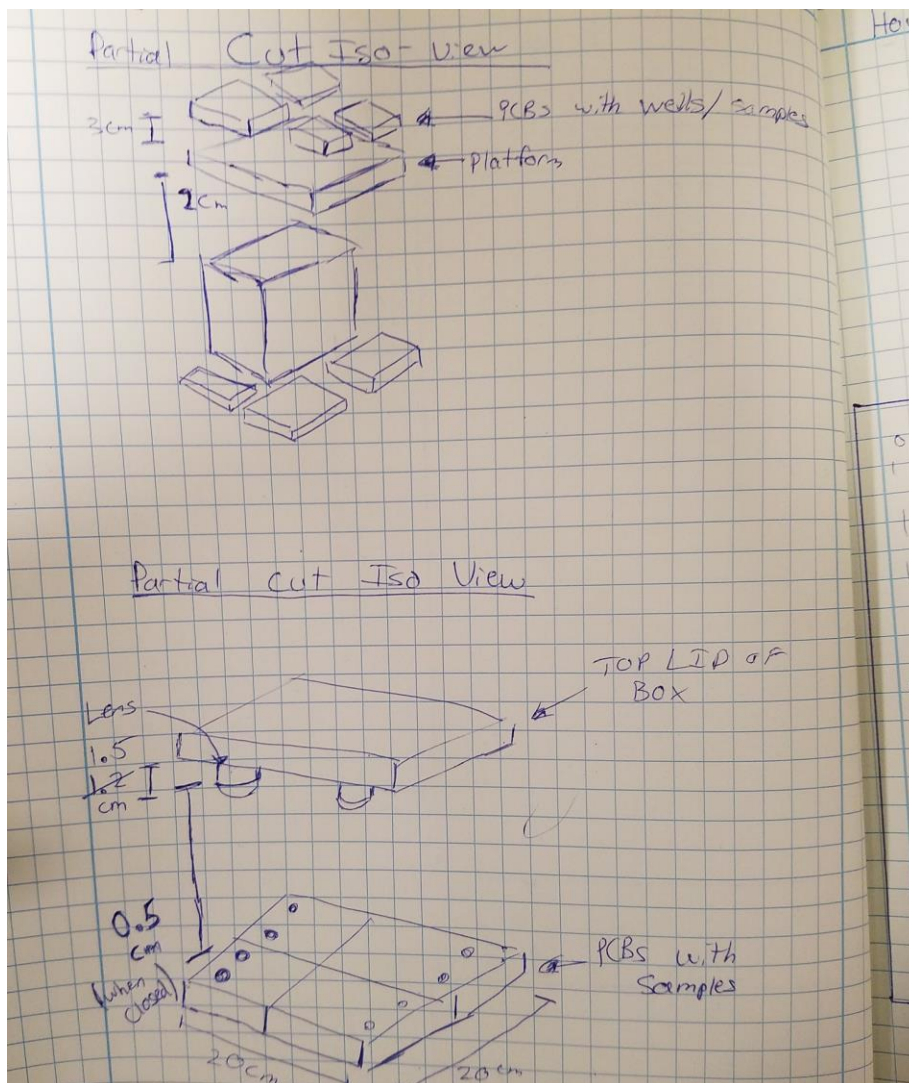 Partial Cut Iso-View
3cm
PCBs with wells/samples
Platform
2cm
Partial Cut Iso View
TOP LID OF
BOX
Lens
1.5
1.2
cm
0.5
cm
(when
closed)
PCBs with
Samples
20cm
20cm